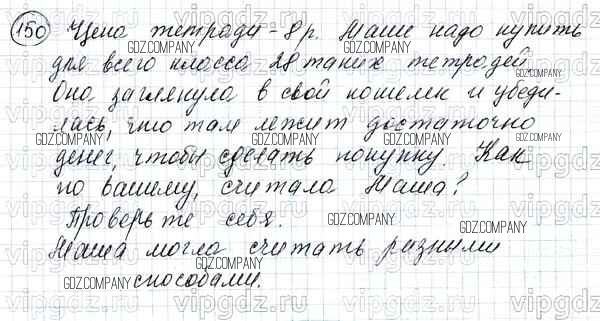 150 Цена тетради - 8 р. Маше надо купить
для всего класса 28 таких тетрадей
Она заглянула в свой кошелек и убеди-
лась, что там лежит достаточно
денег, чтобы сделать покупку. Как
по вашему, считала Маша?
Проверьте себя.
Маша могла считать разными
способами.